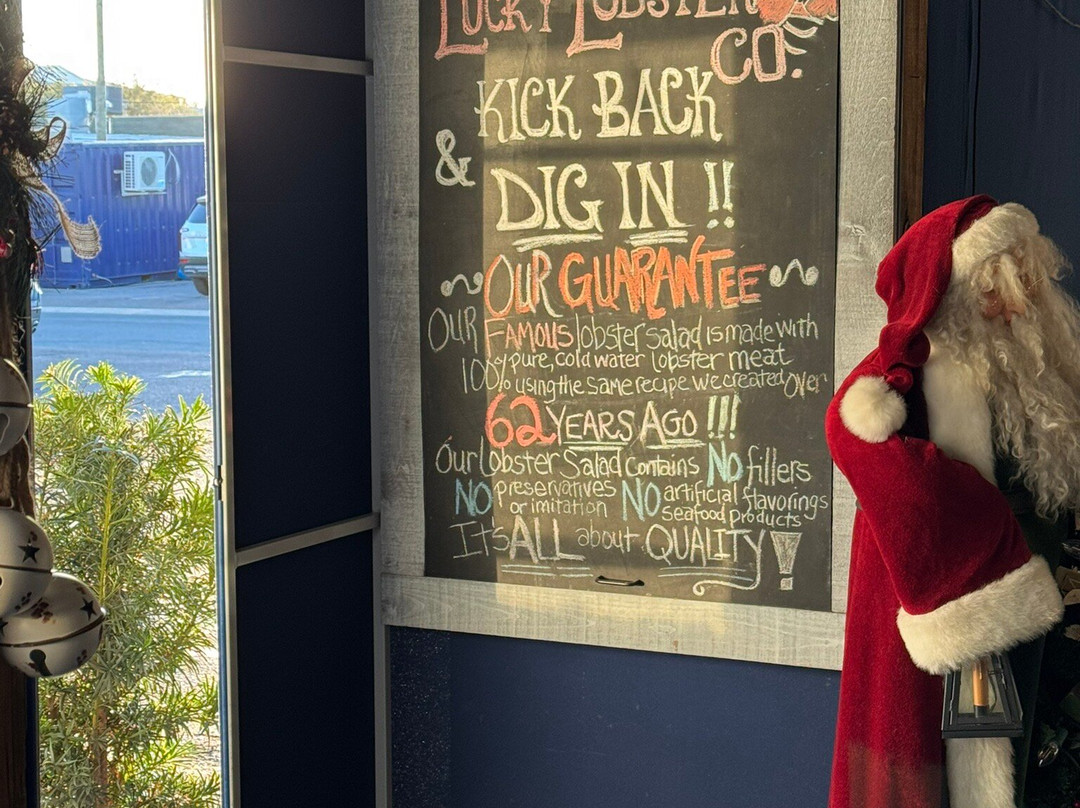 LUCKY LOBSTER
CO.
KICK BACK
&
DIG IN !!
~ OUR GUARANTEE ~
OUR FAMOUS lobster salad is made with
100% pure, cold water lobster meat
using the same recipe we created over
62 YEARS AGO !!!
Our Lobster Salad contains NO fillers
NO preservatives NO artificial flavorings
or imitation seafood products
It's ALL about QUALITY!